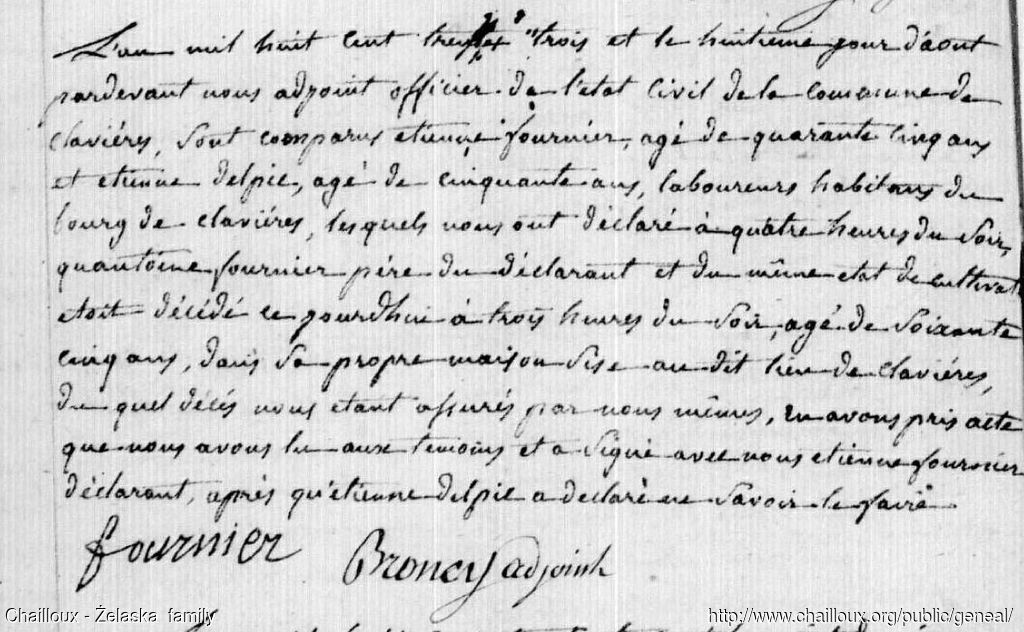 L'an mil huit cent trente trois et le huitieme jour d'aout
pardevant nous adjoint officier de l'etat Civil de la Commune de
claviéres, sont comparus etienne fournier, agé de quarante cinq ans
et etienne delpic, agé de cinquante ans, laboureurs habitans du
bourg de claviéres, lesquels nous ont déclaré à quatre heures du Soir,
qu'antoine fournier pére du déclarant et du même etat de cultivat
etoit décédé ce jourdhui à trois heures du Soir, agé de Soixante
cinq ans, dans Sa propre maison Sise au dit lieu de claviéres,
du quel décés nous etant assurés par nous mêmes, en avons pris acte
que nous avons lu aux temoins et a Signé avec nous etienne fournier
déclarant, aprés qu'etienne delpic a declaré ne Savoir le faire
fournier
Broncy adjoint
Chailloux - Żelaska family
http://www.chailloux.org/public/geneal/